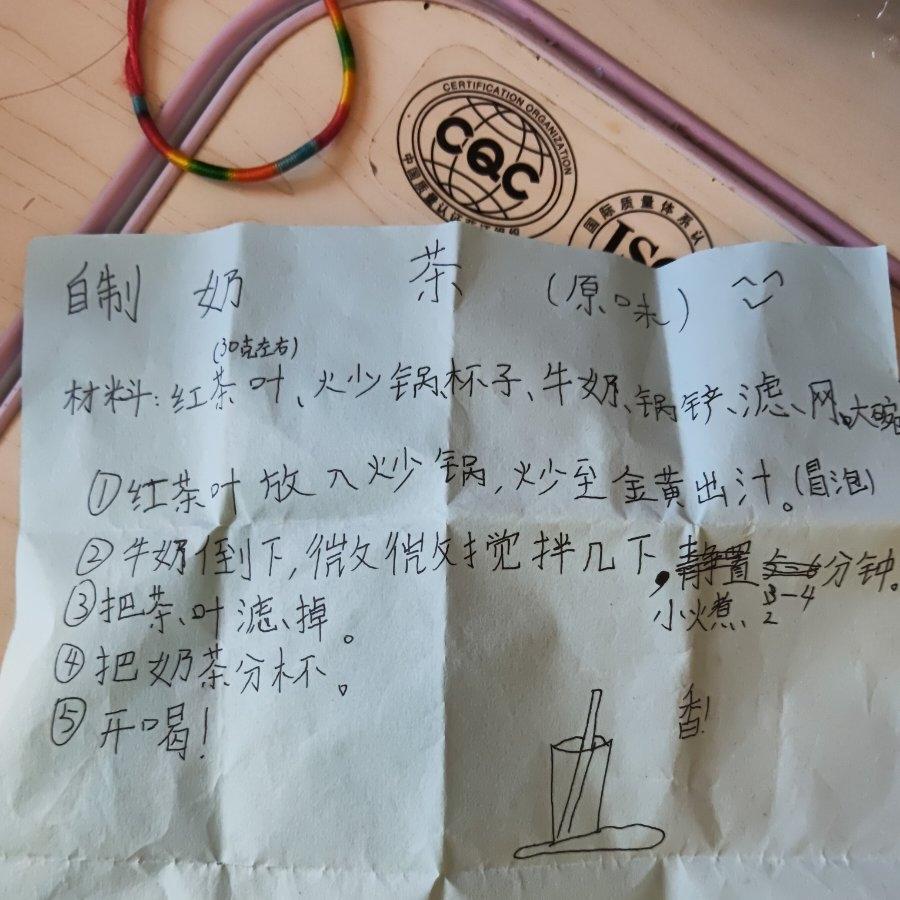 CERTIFICATION ORGANIZATION
CQC
中国质量认证
国际质量体系认
ISO
自制 奶 茶 (原味)
(30克左右)
材料:红茶叶、炒锅、杯子、牛奶、锅铲、滤网。大碗
①红茶叶放入炒锅,炒至金黄出汁。(冒泡)
②牛奶倒下,微微搅拌几下,静置5-6分钟。
小火煮 3-4
2
③把茶叶滤掉。
④把奶茶分杯。
⑤开喝!
香!